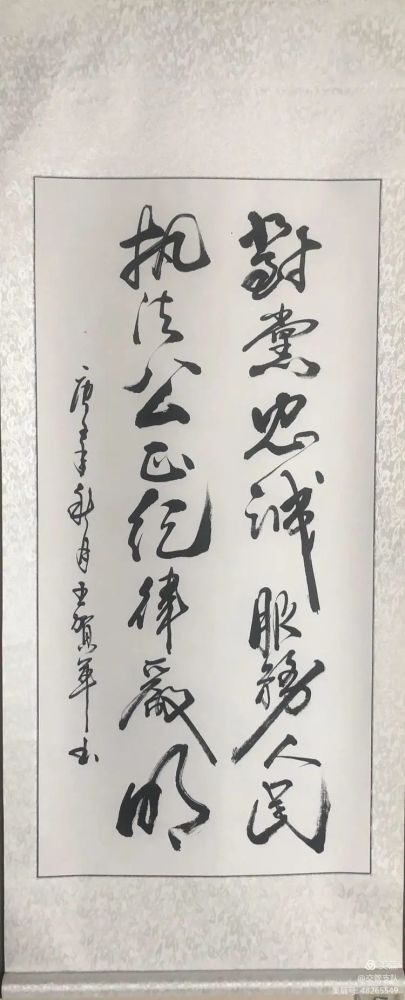 對黨忠诚服務人民
执法公正纪律嚴明
庚子年秋月王贺军书
@交警支队
美篇号:48265549